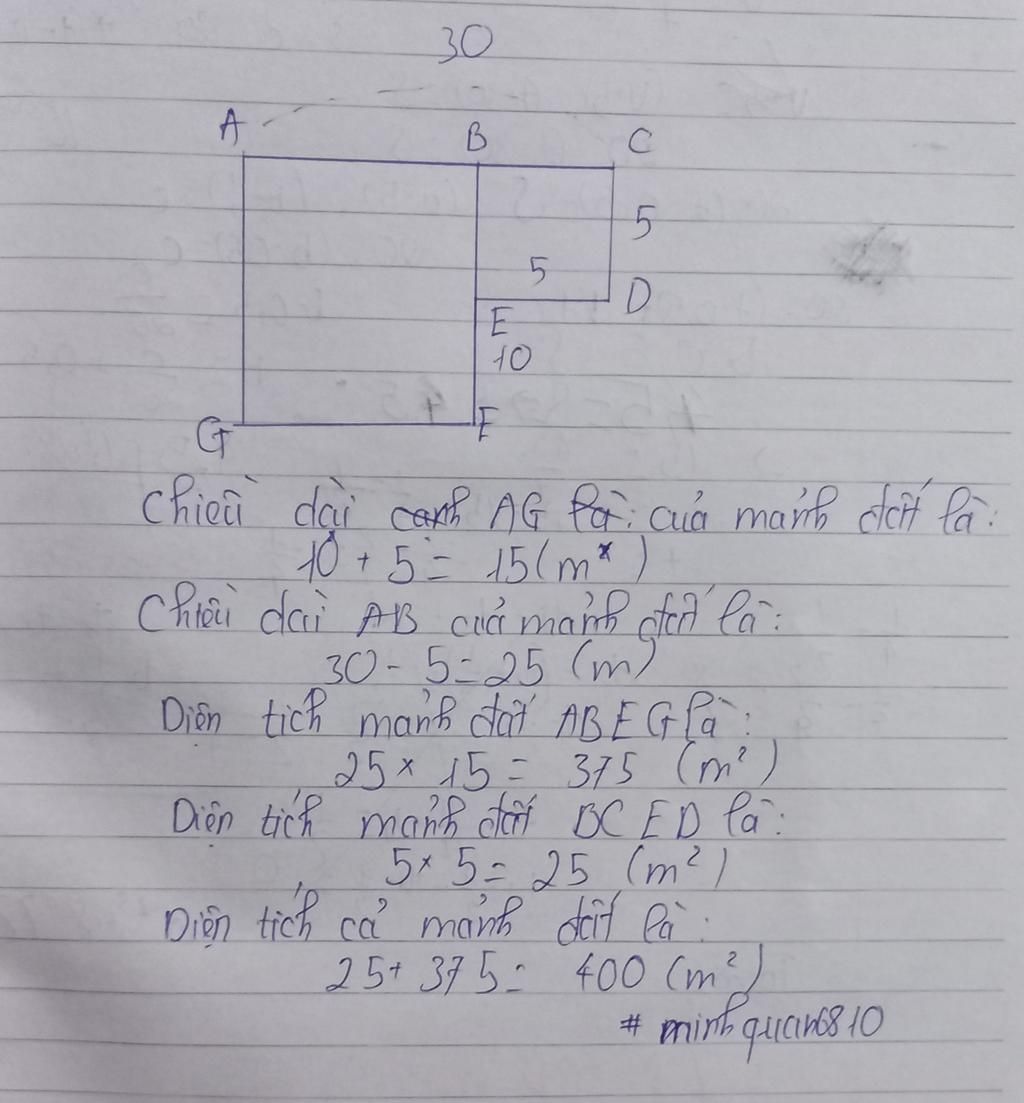 30
A B C
5
5
D
E
10
G F
Chiều dài cạnh AG là: của mảnh đất là:
10 + 5 = 15 (m)
Chiều dài AB của mảnh đất là:
30 - 5 = 25 (m)
Diện tích mảnh đất ABEG là:
25 × 15 = 375 (m²)
Diện tích mảnh đất BCED là:
5 × 5 = 25 (m²)
Diện tích cả mảnh đất là:
25 + 375 = 400 (m²)
# minhquan6810